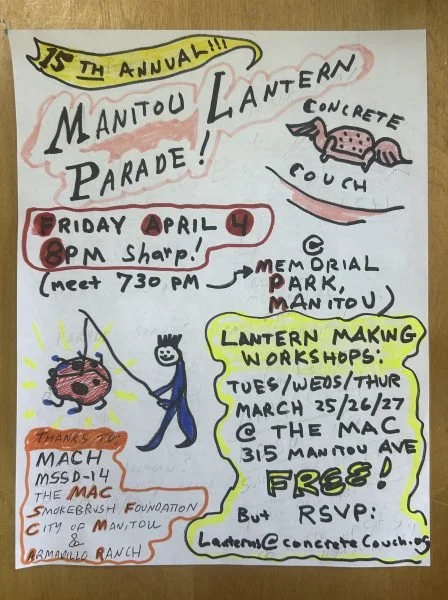 15TH ANNUAL!!!
MANITOU LANTERN
PARADE!
CONCRETE
COUCH
FRIDAY APRIL 4
8PM Sharp!
(meet 730 PM
@
MEMORIAL
PARK,
MANITOU)
LANTERN MAKING
WORKSHOPS:
TUES/WEDS/THUR
MARCH 25/26/27
@ THE MAC
315 MANITOU AVE
FREE!
But RSVP:
Lanterns@concretecouch.org
THANKS TO:
MACH
MSSD-14
THE MAC
SMOKEBRUSH FOUNDATION
CITY OF MANITOU
&
ARMADILLO RANCH